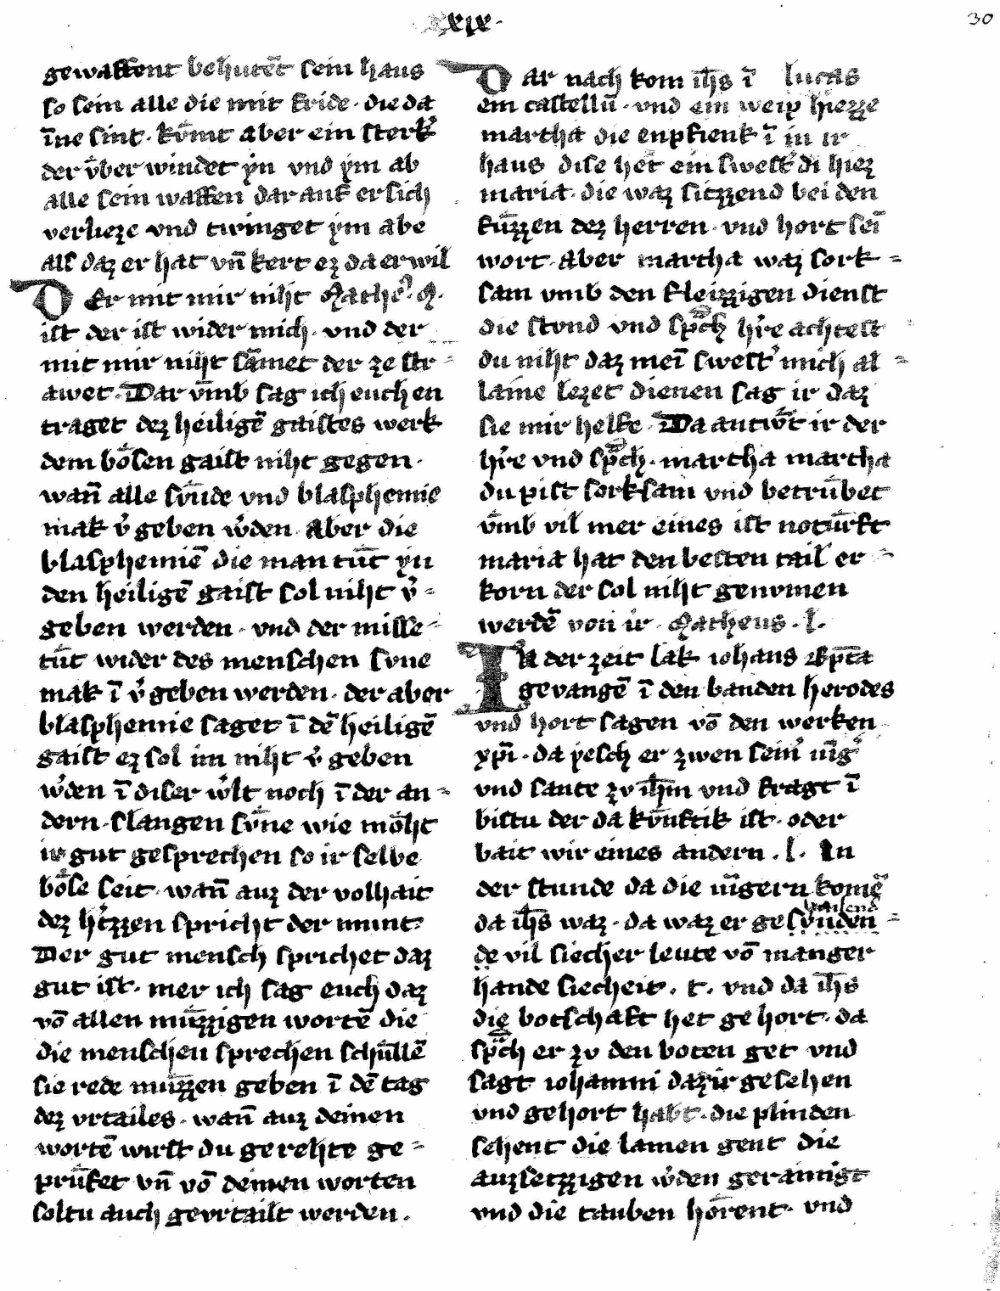 xxix.
30
gewaffent behutēt sein haus
so sein alle die mit fride · die da
īne sint · kv̄mt aber ein sterkʼ
der v̊ber windet yn vnd ym ab
alle sein waffen dar auf er sich
verlieze vnd twinget ym abe
als daz er hat vn̄ kert ez da er wil
Der mit mir niht Mathe⁹ · M ·
ist der ist wider mich · vnd der
mit mir niht sāmet der ze str-
awet · Dar v̄mb sag ich euch en
traget dez heiligē gaistes werk
dem bősen gaist niht gegen ·
wan̄ alle sv̄nde vnd blasphemie
mak vʼgeben wʼden · Aber die
blasphemiē die man tūt yn
den heiligē gaist sol niht vʼ-
geben werden · vnd der misse-
tūt wider des menschen svne
mak ī vʼgeben werden · der aber
blasphemie saget ī dē heiligē
gaist ez sol im niht vʼgeben
wʼden ī diser wʼlt noch ī der an-
dern · slangen sv̄ne wie mőht
ir gut gesprechen so ir selbe
bőse seit · wan̄ auz der volhait
dez hʼzzen spricht der munt
Der gut mensch sprichet daz
gut ist · mer ich sag euch daz
vō allen mūzzigen wortē die
die menschen sprechen schullē
sie rede muzzen geben ī dē tag
dez vrtailes · wan̄ auz deinen
wortē wirst du gerehte ge-
prūfet vn̄ vō deinen worten
soltu auch gevrtailt werden .
Dar nach kom ih̄s ī lucas
ein castellū · vnd ein weip hiezze
martha die enpfienk ī in ir
haus dise het ein swestʼ di hiez
maria · die waz sitzzend bei den
fūzzen dez herren · vnd hort seī
wort · Aber martha waz sork-
sam vmb den fleizzigen dienst
die stond vnd spᵃch hʼre achtest
du niht daz meī swestʼ mich al-
laine lezet dienen sag ir daz
sie mir helfe · Da antwʼt ir der
hʼre vnd spᵃch · martha martha
du pist sorksam vnd betrūbet
v̄mb vil mer eines ist notūrft
maria hat den besten tail er-
korn der sol niht genomen
werdē von ir · Matheus . l .
In der zeit lak iohans Bpt̄a
gevangē ī den banden herodes
vnd hort sagen vō den werken
xp̄i · da pesch er zwen seinʼ iūgʼ
vnd sante zv ih̄m vnd fragt ī
bistu der da kv̄nftik ist · oder
bait wir eines andern . l . In
der stunde da die iūgern komē
gailend
da ih̄s waz · da waz er gesvnden-
de vil siecher leute vō manger
hande siecheit . t . vnd da ih̄s
die botschaft het gehort · da
spᵃch er zv den boten get vnd
sagt iohanni daz ir gesehen
vnd gehort habt · die plinden
sehent die lamen gent die
auzsetzzigen wʼden gerainigt
vnd die tauben hőrent · vnd